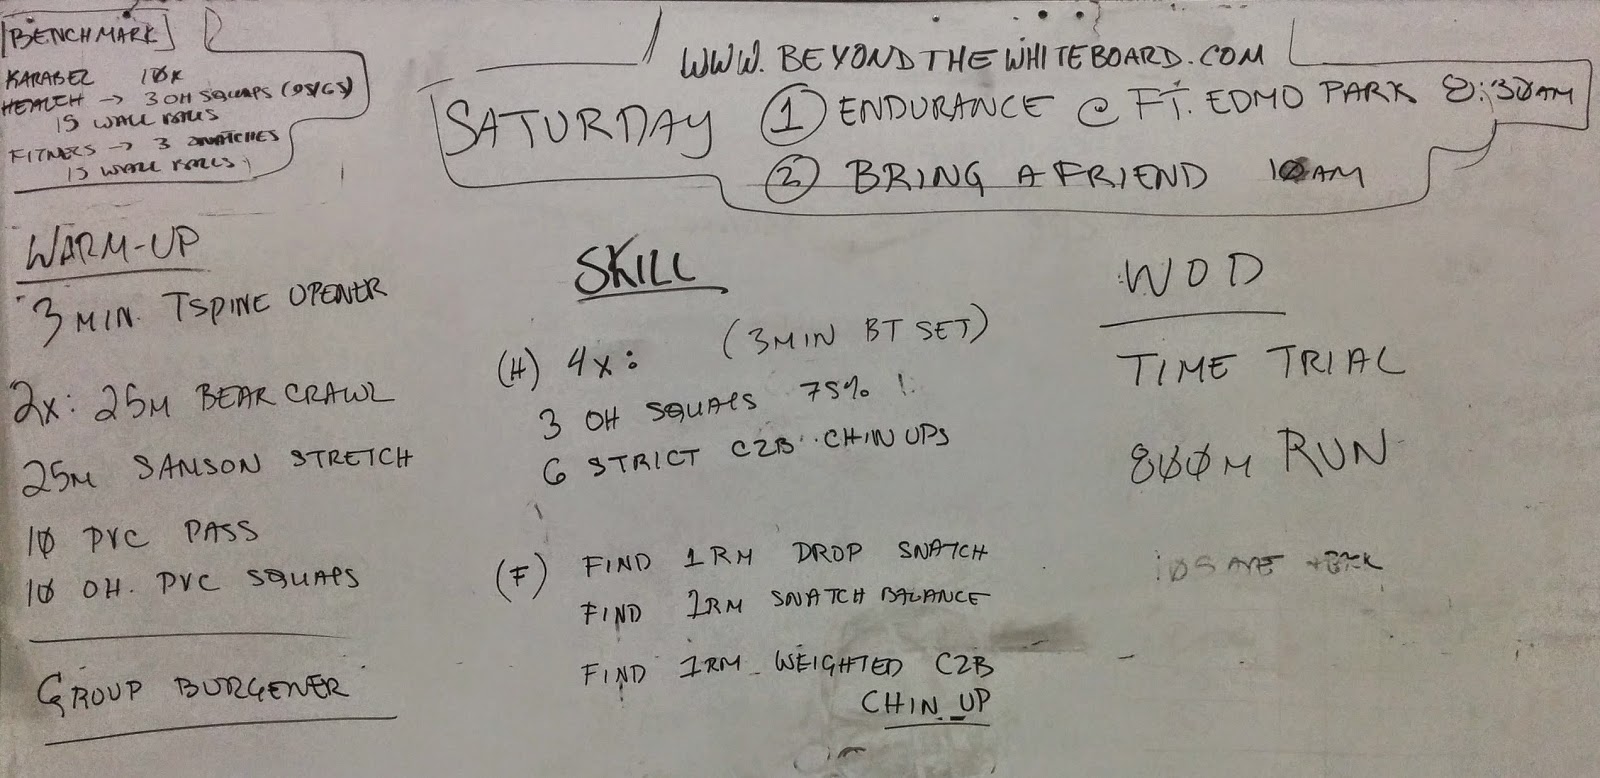 BENCHMARK
KARABEL 10X
HEALTH → 3 OH SQUATS (95/65)
15 WALL BALLS
FITNESS → 3 SNATCHES
15 WALL BALLS
WWW.BEYONDTHEWHITEBOARD.COM
SATURDAY ① ENDURANCE @ FT. EDMO PARK 8:30AM
② BRING A FRIEND 10AM
WARM-UP
3 MIN. TSPINE OPENER
2X: 25M BEAR CRAWL
25M SAMSON STRETCH
10 PVC PASS
10 OH. PVC SQUATS
GROUP BURGENER
SKILL
(H) 4X: (3MIN BT SET)
3 OH SQUATS 75% !
6 STRICT C2B CHIN UPS
(F) FIND 1RM DROP SNATCH
FIND 1RM SNATCH BALANCE
FIND 1RM WEIGHTED C2B
CHIN UP
WOD
TIME TRIAL
800M RUN